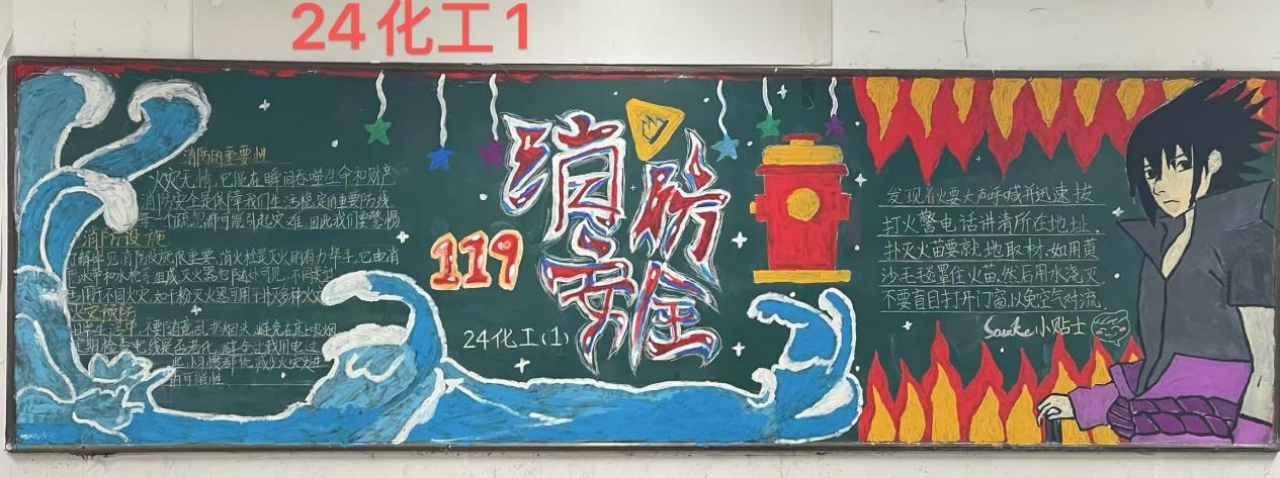 24化工1
消防的重要性
火灾无情,它能在瞬间吞噬生命和财产
消防安全是保障我们生活稳定的重要防线
每一个疏忽都可能引起灾难,因此我们要警惕
消防设施
了解常见消防设施很重要,消火栓是灭火的有力帮手,它由消
水带和水枪等组成灭火器也随处可见,不同类型
不同火灾,如干粉灭火器可用于扑灭多种火灾
火灾预防
日常生活中,不要随意乱扔烟头,避免在床上吸烟
定期检查电线是否老化,避免过载用电
的可能性
119
消防安全
24化工(1)
发现着火要大声呼喊并迅速拨
打火警电话讲清所在地址,
扑灭火苗要就地取材,如用黄
沙毛毯罩住火苗,然后用水浇灭
不要盲目打开门窗,以免空气对流
Sasuke小贴士